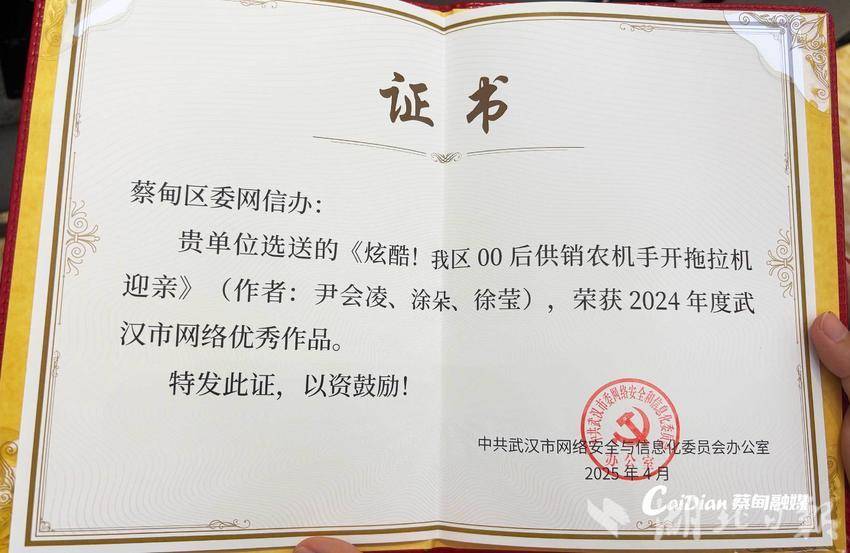 证书
蔡甸区委网信办：
贵单位选送的《炫酷！我区 00 后供销农机手开拖拉机
迎亲》（作者：尹会凌、涂朵、徐莹），荣获 2024 年度武
汉市网络优秀作品。
特发此证，以资鼓励！
中共武汉市委网络安全和信息化委员会
办公室
中共武汉市网络安全与信息化委员会办公室
2025 年 4 月
CaiDian 蔡甸融媒
湖北日报